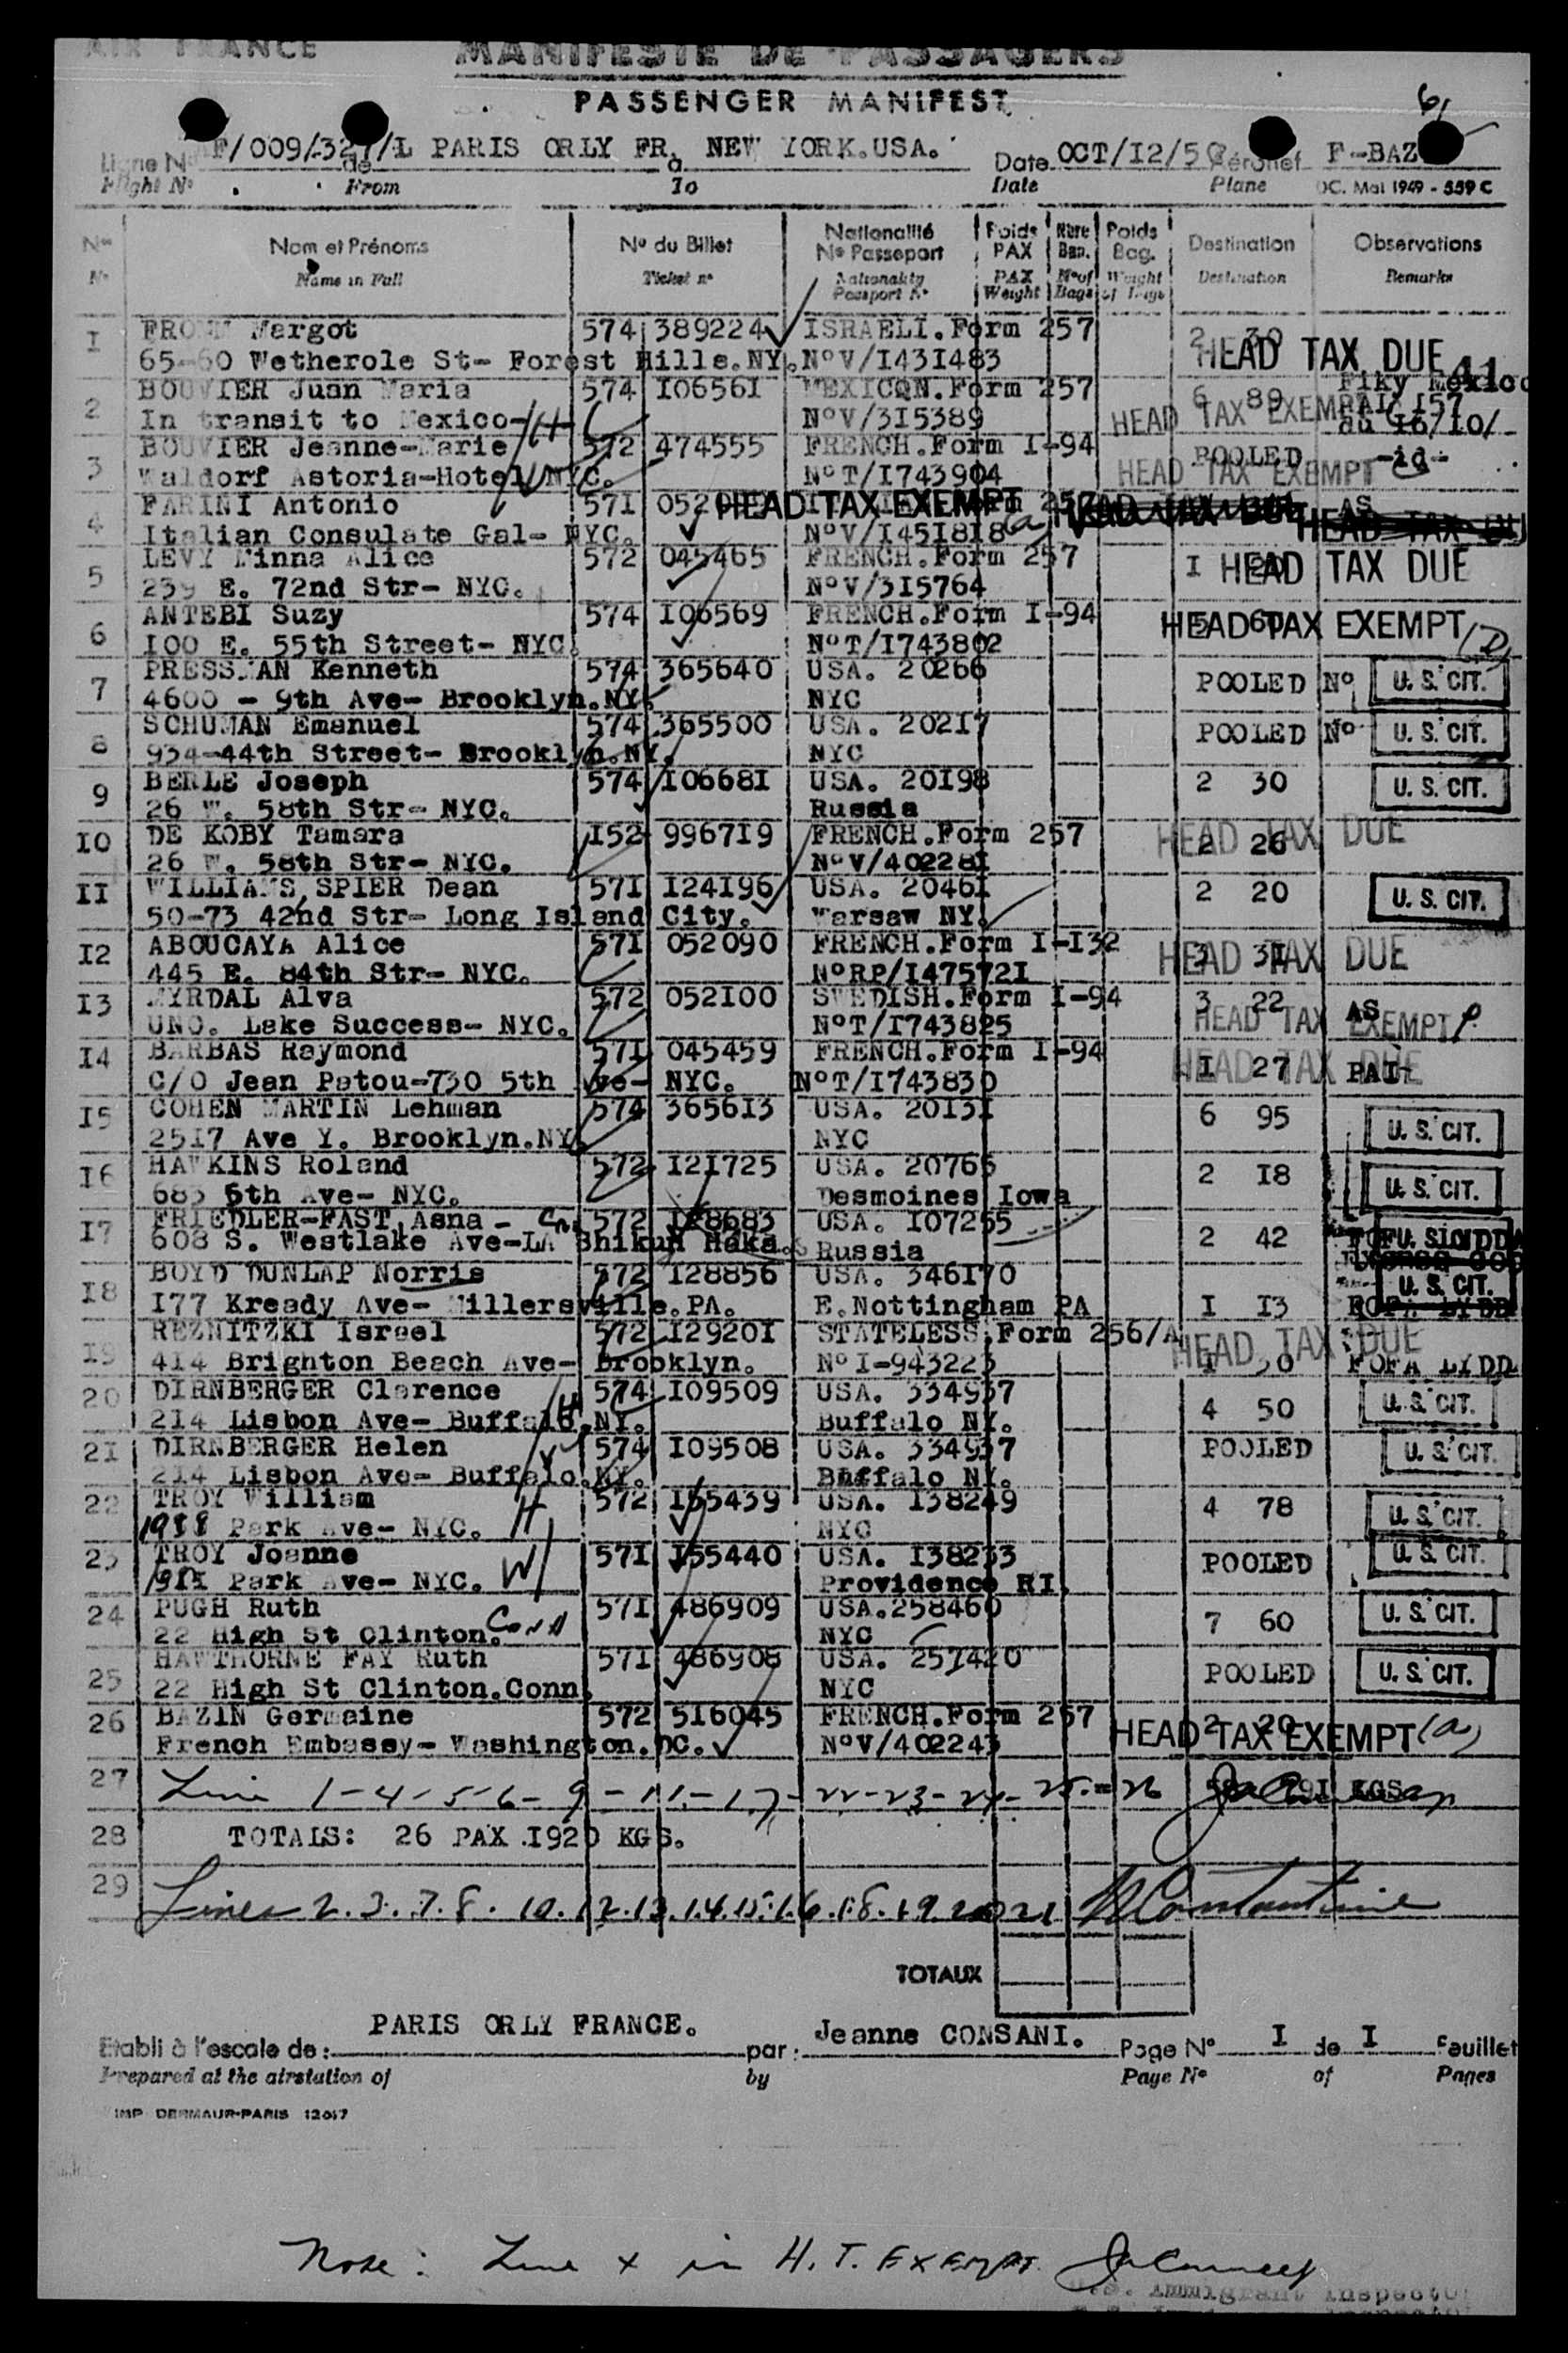 AIR FRANCE MANIFESTE DE PASSAGERS
PASSENGER MANIFEST
Ligne N° F/009/32 /L PARIS ORLY FR. à NEW YORK.USA. Date OCT/I2/5 Aéronef F-BAZ
Flight N° From To Date Plane OC. Mai 1949 - 559 C
N° Nom et Prénoms N° du Billet Nationalité N° Passeport Poids PAX Nbre Bag. Poids Bag. Destination Observations
N° Name in Full Ticket n° Nationality Passport N° PAX Weight N° of Bags Weight of Bags Destination Remarks
I Margot 574 389224 ISRAELI.Form 257 2 30
65-60 Wetherole St- Forest Hills.NY. N°V/I43I483 HEAD TAX DUE
2 BOUVIER Juan Maria 574 I0656I MEXICQN.Form 257 6 89
In transit to Mexico- N°V/3I5389 HEAD TAX EXEMPT du I6/IO/-
3 BOUVIER Jeanne-Marie 572 474555 FRENCH.Form I-94 POOLED -id-
Waldorf Astoria-Hotel NYC. N°T/I743904 HEAD TAX EXEMPT
4 FARINI Antonio 57I HEAD TAX EXEMPT AS
Italian Consulate Gal- NYC. N°V/I45I8I8
5 LEVY Minna Alice 572 045465 FRENCH.Form 257 I HEAD TAX DUE
239 E. 72nd Str- NYC. N°V/3I5764
6 ANTEBI Suzy 574 I06569 FRENCH.Form I-94 HEAD TAX EXEMPT
I00 E. 55th Street- NYC. N°T/I743802
7 PRESSMAN Kenneth 574 365640 USA. 20266 POOLED N° U. S. CIT.
4600 - 9th Ave- Brooklyn.NY. NYC
8 SCHUMAN Emanuel 574 365500 USA. 202I7 POOLED N° U. S. CIT.
934-44th Street- Brooklyn.NY. NYC
9 BERLE Joseph 574 I0668I USA. 20198 2 30 U. S. CIT.
26 W. 58th Str- NYC. Russia
I0 DE KOBY Tamara I52 9967I9 FRENCH.Form 257 2 26 HEAD TAX DUE
26 W. 58th Str- NYC. N°V/40228I
II WILLIAMS, SPIER Dean 57I I24I96 USA. 2046I 2 20 U. S. CIT.
50-73 42nd Str- Long Island City. Warsaw NY.
I2 ABOUCAYA Alice 57I 052090 FRENCH.Form I-I32 3 3I HEAD TAX DUE
445 E. 84th Str- NYC. N°RP/I47572I
I3 MYRDAL Alva 572 052I00 SWEDISH.Form I-94 3 22 AS
UNO. Lake Success- NYC. N°T/I743825 HEAD TAX EXEMPT
I4 BARBAS Raymond 57I 045459 FRENCH.Form I-94 I 27 HEAD TAX DUE
C/O Jean Patou-730 5th Ave- NYC. N°T/I743830
I5 COHEN MARTIN Lehman 574 3656I3 USA. 20I3I 6 95 U. S. CIT.
25I7 Ave Y. Brooklyn.NY. NYC
I6 HAWKINS Roland 572 I2I725 USA. 20765 2 I8 U. S. CIT.
683 5th Ave- NYC. Desmoines Iowa
I7 FRIEDLER-FAST, Asna - 572 I28683 USA. I07255 2 42
608 S. Westlake Ave-LA Shikun Haka. Russia
I8 BOYD DUNLAP Norris 572 I28856 USA. 346I70 U. S. CIT.
I77 Kready Ave- Millersville.PA. E.Nottingham PA I I3
I9 REZNITZKI Israel 572 I2920I STATELESS.Form 256/A HEAD TAX DUE
4I4 Brighton Beach Ave- Brooklyn. N°I-943223 I 30 FOFA LYDD
20 DIRNBERGER Clarence 574 I09509 USA. 334937 4 50 U. S. CIT.
2I4 Lisbon Ave- Buffalo.NY. Buffalo NY.
2I DIRNBERGER Helen 574 I09508 USA. 334937 POOLED U. S. CIT.
2I4 Lisbon Ave- Buffalo.NY. Buffalo NY.
22 TROY William H 572 I55439 USA. I38249 4 78 U. S. CIT.
Park Ave- NYC. NYC
23 TROY Joanne W 57I I55440 USA. I38233 POOLED U. S. CIT.
Park Ave- NYC. Providence RI.
24 PUGH Ruth 57I 486909 USA.258460 7 60 U. S. CIT.
22 High St Clinton. Conn NYC
25 HAWTHORNE FAY Ruth 57I 486908 USA. 257420 POOLED U. S. CIT.
22 High St Clinton.Conn. NYC
26 BAZIN Germaine 572 5I6045 FRENCH.Form 257 HEAD TAX EXEMPT (a)
French Embassy- Washington.DC. N°V/402243
27 Line 1-4-5-6-9-11-17-22-23-24-25-26 KGS
28 TOTALS: 26 PAX I920 KGS.
29 Lines 2.3.7.8.10.12.13.14.15.16.18.19.20 21
TOTAUX
Etabli à l'escale de: PARIS ORLY FRANCE. par: Jeanne CONSANI. Page N° I de I Feuillet
Prepared at the airstation of by Page N° of Pages
IMP DERMAUR-PARIS
Note: Line x is H.T. Exempt.
U.S. Immigrant Inspector